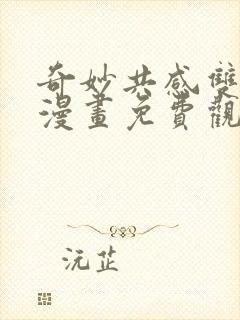 奇妙共感雙
漫畫免費觀
沅芷